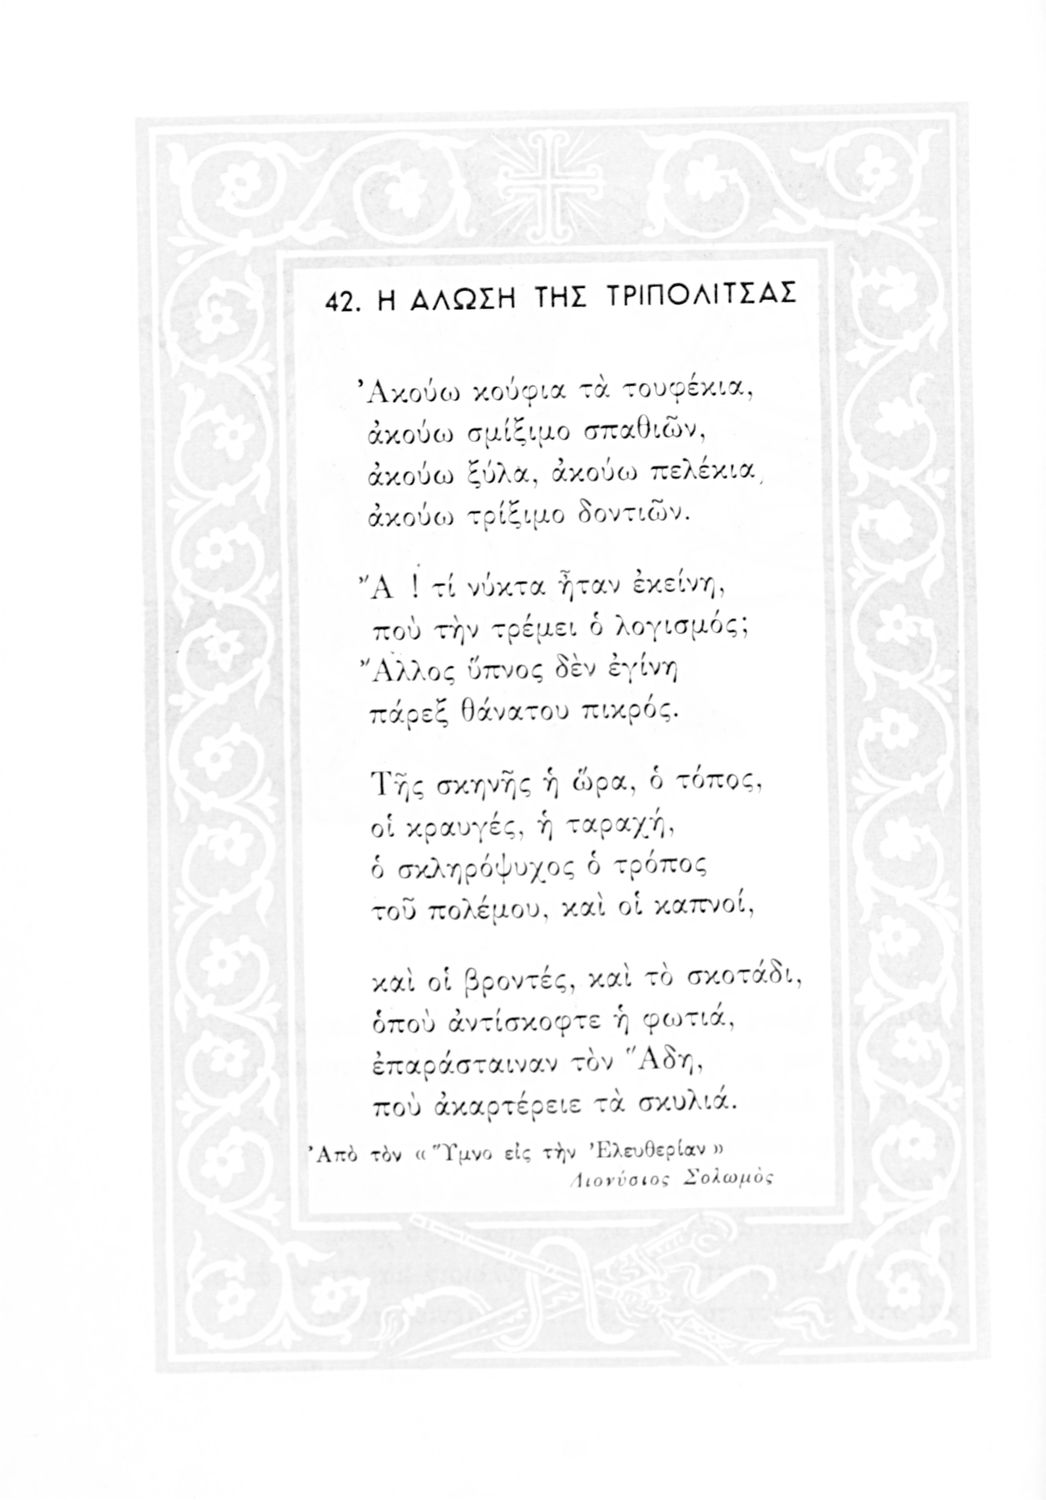 42. Η ΑΛΩΣΗ ΤΗΣ ΤΡΙΠΟΛΙΤΣΑΣ
Ἀκούω κούφια τὰ τουφέκια,
ἀκούω σμίξιμο σπαθιῶν,
ἀκούω ξύλα, ἀκούω πελέκια,
ἀκούω τρίξιμο δοντιῶν.
Ἄ ! τί νύκτα ἦταν ἐκείνη,
ποὺ τὴν τρέμει ὁ λογισμός;
Ἄλλος ὕπνος δὲν ἐγίνη
πάρεξ θάνατου πικρός.
Τῆς σκηνῆς ἡ ὥρα, ὁ τόπος,
οἱ κραυγές, ἡ ταραχή,
ὁ σκληρόψυχος ὁ τρόπος
τοῦ πολέμου, καὶ οἱ καπνοί,
καὶ οἱ βροντές, καὶ τὸ σκοτάδι,
ὁποὺ ἀντίσκοφτε ἡ φωτιά,
ἐπαράσταιναν τὸν Ἅδη,
ποὺ ἀκαρτέρειε τὰ σκυλιά.
Ἀπὸ τὸν « Ὕμνο εἰς τὴν Ἐλευθερίαν »
Διονύσιος Σολωμὸς